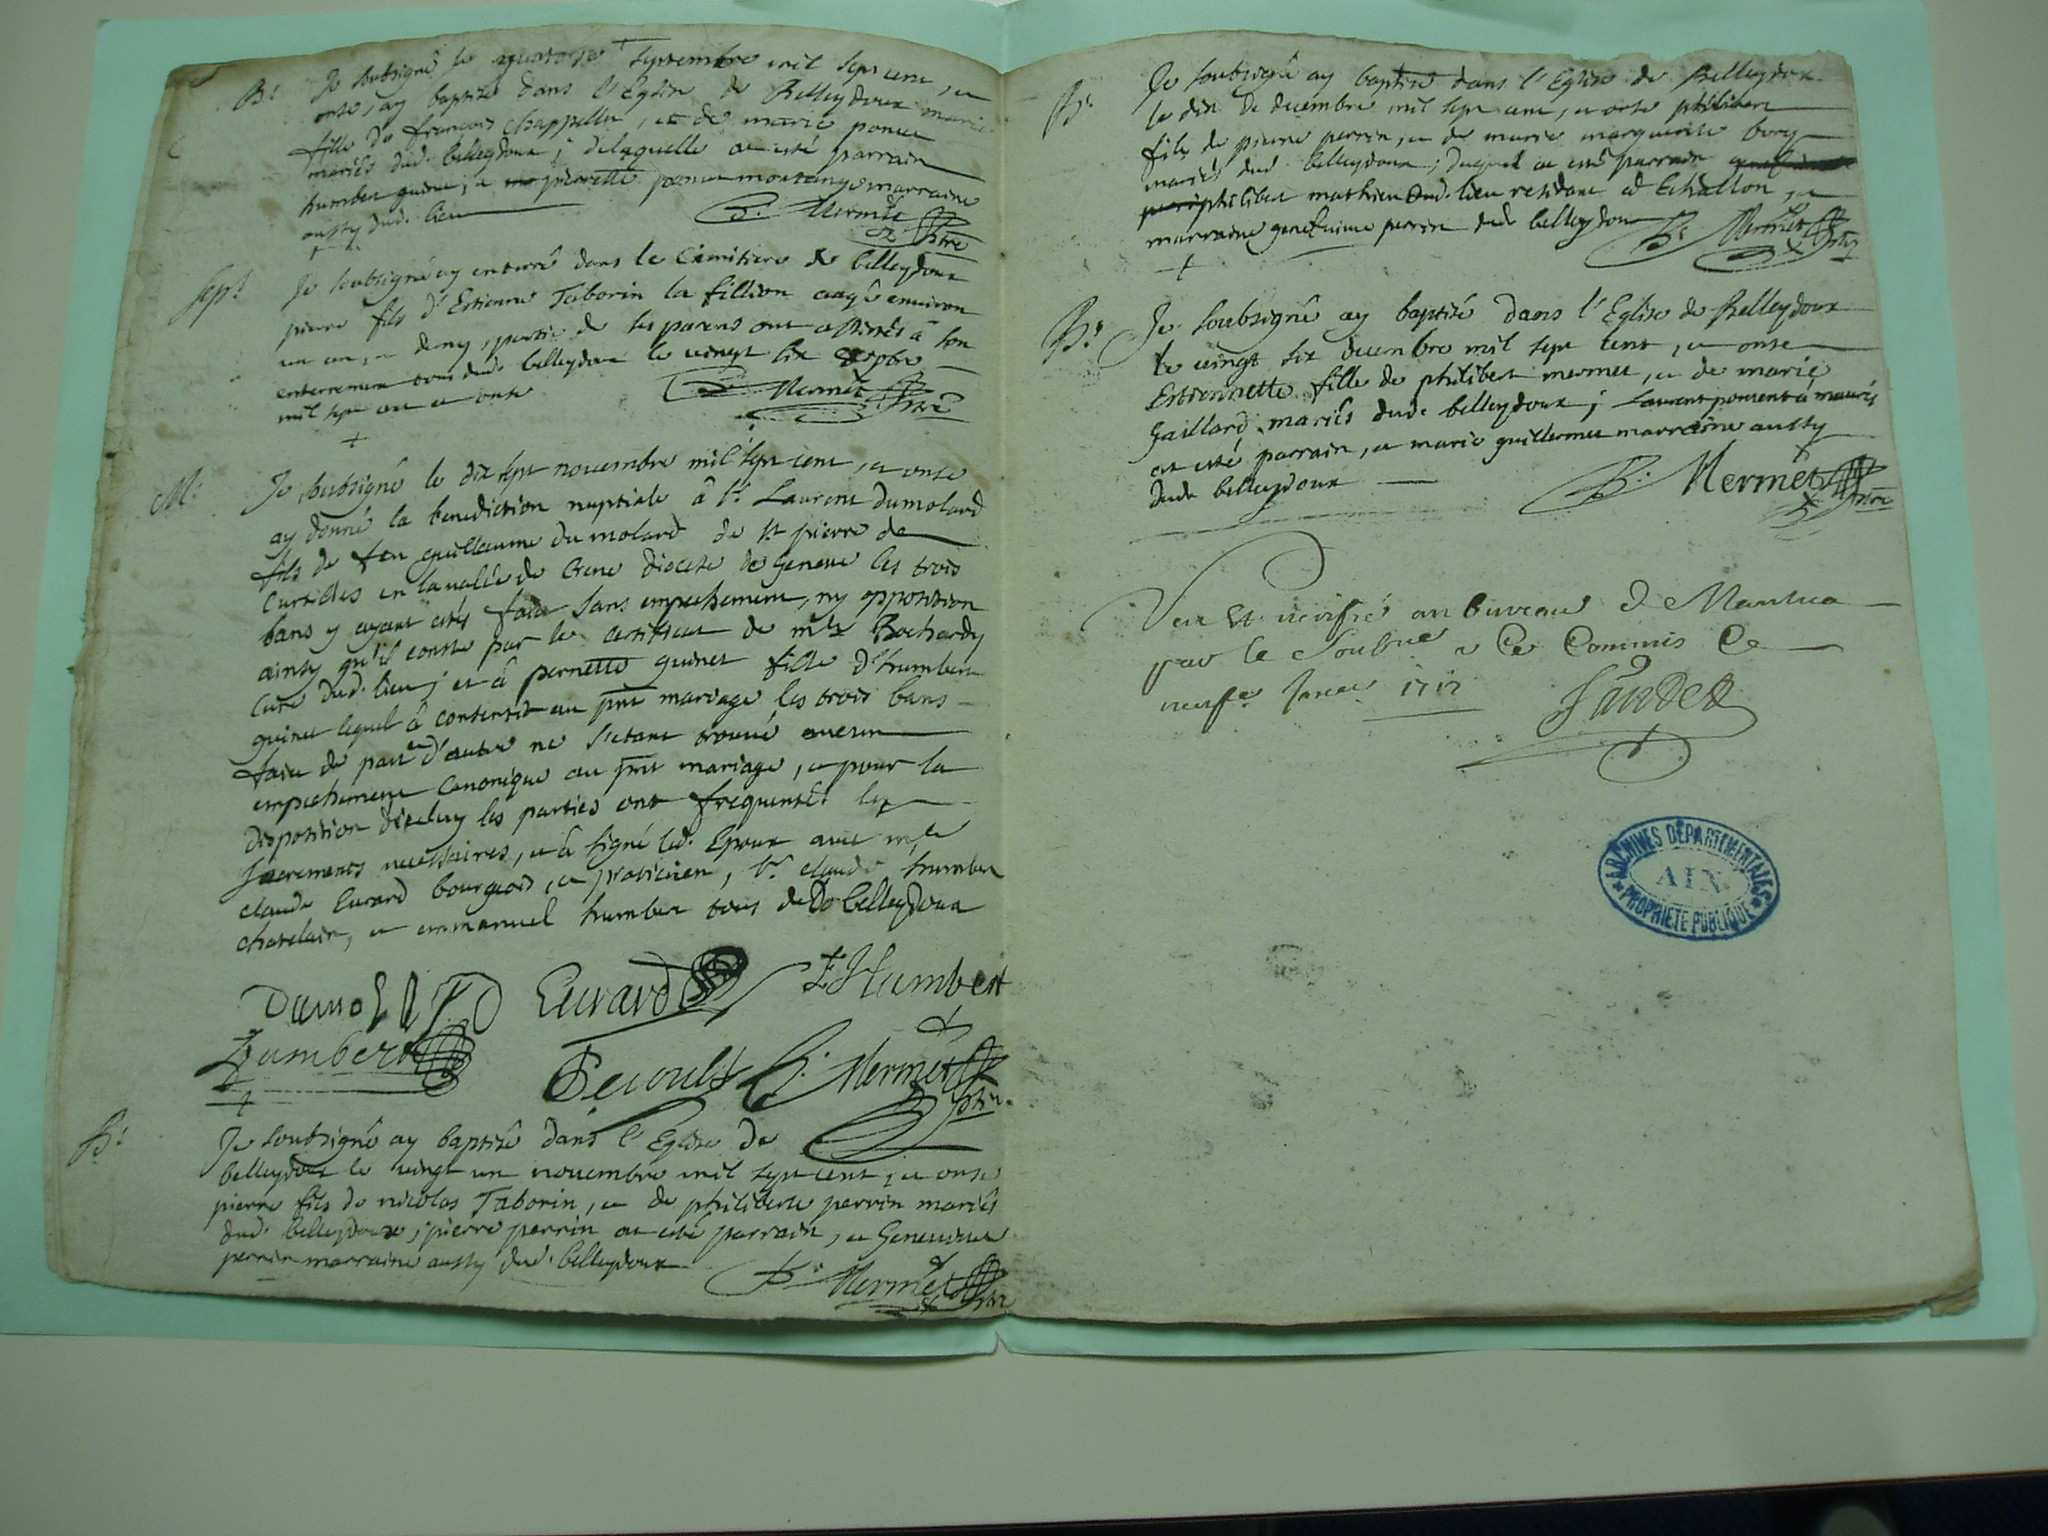 Bt. Je soubsigné le quatorze septembre mil sept cent, et
onse, ay baptisé dans l'Eglise de Belleydoux marie
fille de françois chappellu, et de marie poncet
mariés dud. belleydoux; de laquelle at esté parrain
humbert guinet, et pierrette poncet moutange marraine
aussy dud. lieu
B. Mermet
ptre
Sept. Je soubsigné ay enterré dans le Cimitiere de belleydoux
pierre fils d'Estienne Taborin la fillion aagé environ
un an, et demy, partie de ses parens ont assistés à son
enterrement tous dud. belleydoux le vingt six sepbre
mil sept cen et onse
B. Mermet ptre
M. Je soubsigné le dix sept novembre mil sept cent, et onse
ay donné la benediction nuptiale à Sr. Laurent dumolard
fils de feu guillaume du molard de St pierre de
Curtilles en la valée de Crene diocese de Geneve les trois
bans y ayant estés faits sans empechement, ny opposition
ainsy qu'il conste par le certificat de mre Bochardy
Curé dud. lieu; et à pernette guinet fille d'humbert
guinet lequel à consenti au pnt mariage les trois bans
faits de part et d'autre ne s'etant trouvé aucun
empechement canonique au pnt mariage, et pour la
disposition d'iceluy les parties ont frequentés les
sacrements necessaires, et à signé led. Epoux avec mre
claude Evrard bourgeois, et praticien, Sr. claude humbert
chatelain, et emmanuel humbert tous dud. belleydoux
Dumolard Evrard E Humbert
Humbert Secoult B. Mermet
ptre
Bt. Je soubsigné ay baptisé dans l'Eglise de
belleydoux le vingt un novembre mil sept cent, et onse
pierre fils de nicolas Taborin, et de philiberte perrin mariés
dud. belleydoux; pierre perrin at esté parrain, et Genevieve
perrin marraine aussy dud. belleydoux
B. Mermet ptre
Bt. Je soubsigné ay baptisé dans l'Eglise de Belleydoux
le dix de decembre mil sept cent, et onse philibert
fils de pierre perrin, et de marie marguerite
mariés dud. belleydoux; duquel at esté parrain
philibert mathieu dud. lieu residant à Echallon, et
marraine genefvieve perrin dud. belleydoux
B. Mermet ptre
Bt. Je soubsigné ay baptisé dans l'Eglise de Belleydoux
le vingt six decembre mil sept cent, et onse
Estiennette fille de philibert mermet, et de marie
Gaillard mariés dud. belleydoux; Laurent poncent à mauris
at esté parrain, et marie guillermet marraine aussy
dud. belleydoux
B. Mermet ptre
Veu et veriffié au bureau de Nantua
par le Soubné a Ce Commis Ce
neuf Janer 1712
Sandet
ARCHIVES DEPARTEMENTALES
AIN
PROPRIÉTÉ PUBLIQUE